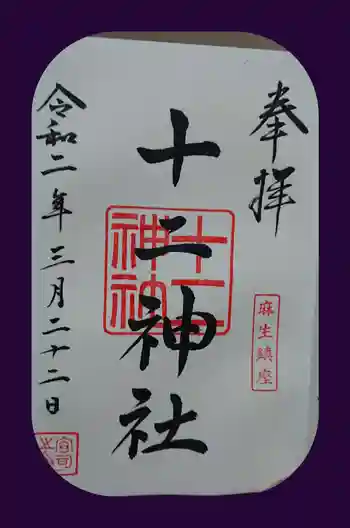 奉拝
麻生鎮座
十二神社
十二神社
令和二年三月二十二日
宮司